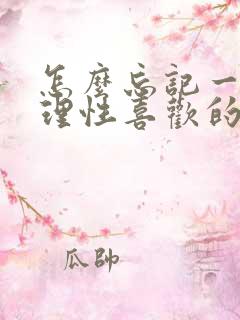 怎麼忘記一
理性喜歡的
瓜帥